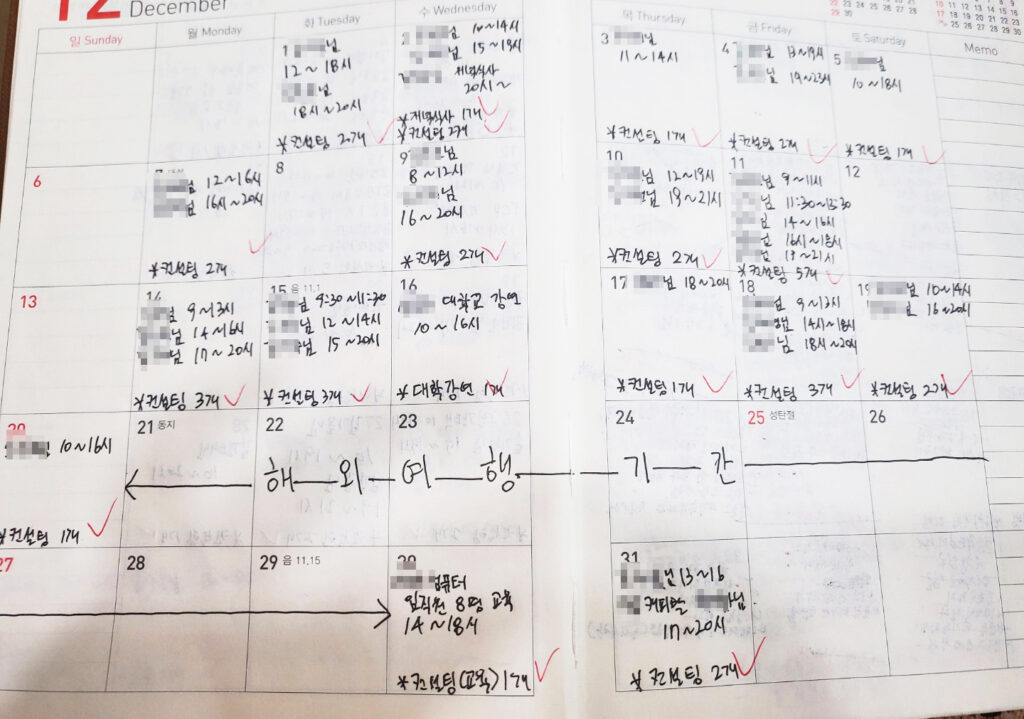 12 December
일 Sunday
월 Monday
화 Tuesday
수 Wednesday
목 Thursday
금 Friday
토 Saturday
Memo
1 님
12~18시
님
18시~20시
*컨설팅 2개
2 10~14시
15~19시
저녁식사
20시~
*저녁식사 1개
*컨설팅 2개
3 님
11~14시
*컨설팅 1개
4 님 13~19시
님 19~23시
*컨설팅 2개
5 님
10~18시
*컨설팅 1개
6
님 12~16시
님 16시~20시
*컨설팅 2개
8
9 님
8~12시
님
16~20시
*컨설팅 2개
10
님 12~19시
님 19~21시
*컨설팅 2개
11
님 9~11시
님 11:30~13:30
님 14~16시
님 16시~18시
님 19~21시
*컨설팅 5개
12
13
14
님 9~13시
님 14~16시
님 17~20시
*컨설팅 3개
15 음 11.1
님 9:30~11:30
님 12~14시
님 15~20시
*컨설팅 3개
16
대학교 강연
10~16시
*대학강연 1개
17 님 18~20시
*컨설팅 1개
18
님 9~13시
님 14시~18시
님 18시~20시
*컨설팅 3개
19 님 10~14시
님 16~20시
*컨설팅 2개
20
님 10~16시
*컨설팅 1개
21 동지
22
23
24
25 성탄절
26
해외여행기간
27
28
29 음 11.15
30
컴퓨터
임직원 8명 교육
14~18시
*컨설팅(교육) 1개
31
님 13~16
커피랑 님
17~20시
*컨설팅 2개